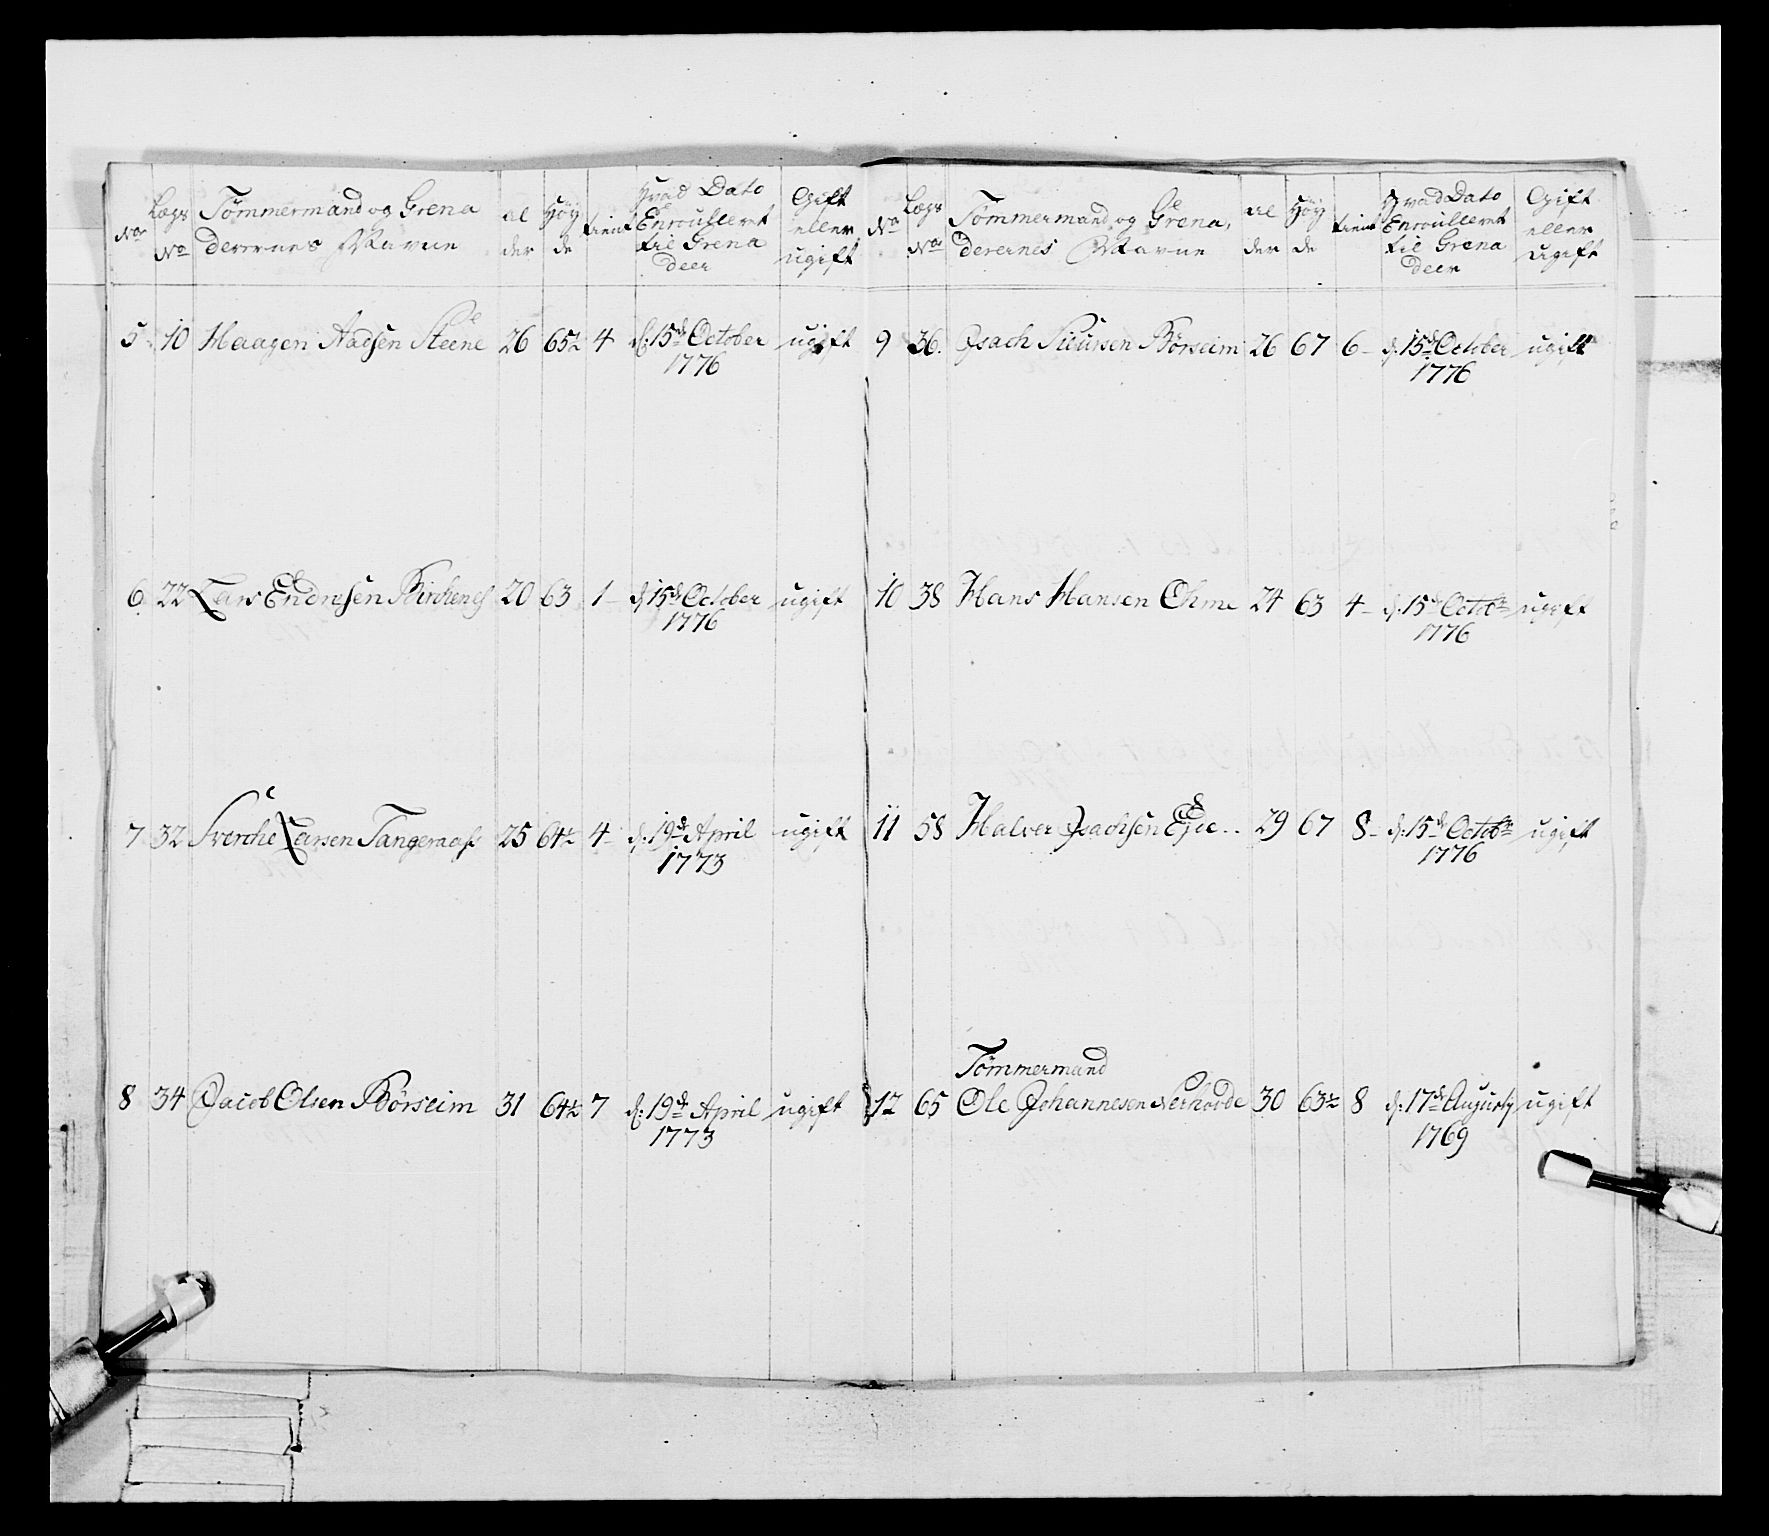 No
Lægs
No
Tømmermand og Grena
derernes Navne
al
der
Høy
de
tient
Hvad Dato
Enroulleret
til Grena
deer
Gift
eller
ugift
5 10 Haagen Aadsen Steene 26 65½ 4 d: 15de October ugift
1776
6 22 Lars Endresen Birchenes 20 63 1 d: 15de October ugift
1776
7 32 Sverche Larsen Tangeraas 25 64½ 4 d: 19de April ugift
1773
8 34 Jacob Olsen Børseim 31 64½ 7 d: 19de April ugift
1773
No
Lægs
No
Tømmermand og Grena,
derernes Navne
al
der
Høy
de
tient
Hvad Dato
Enroulleret
til Grena
deer
Gift
eller
ugift
9 36. Isach Siursen Børseim 26 67 6 d. 15de October ugift
1776
10 38 Hans Hansen Ohme 24 63 4 d. 15de Octobr ugift
1776
11 58 Halver Isachsen Eje 29 67 8 d. 15de Octobr ugift
1776
Tømmermand
12 65 Ole Johannesen 30 63½ 8 d. 17de Augusty ugift
1769